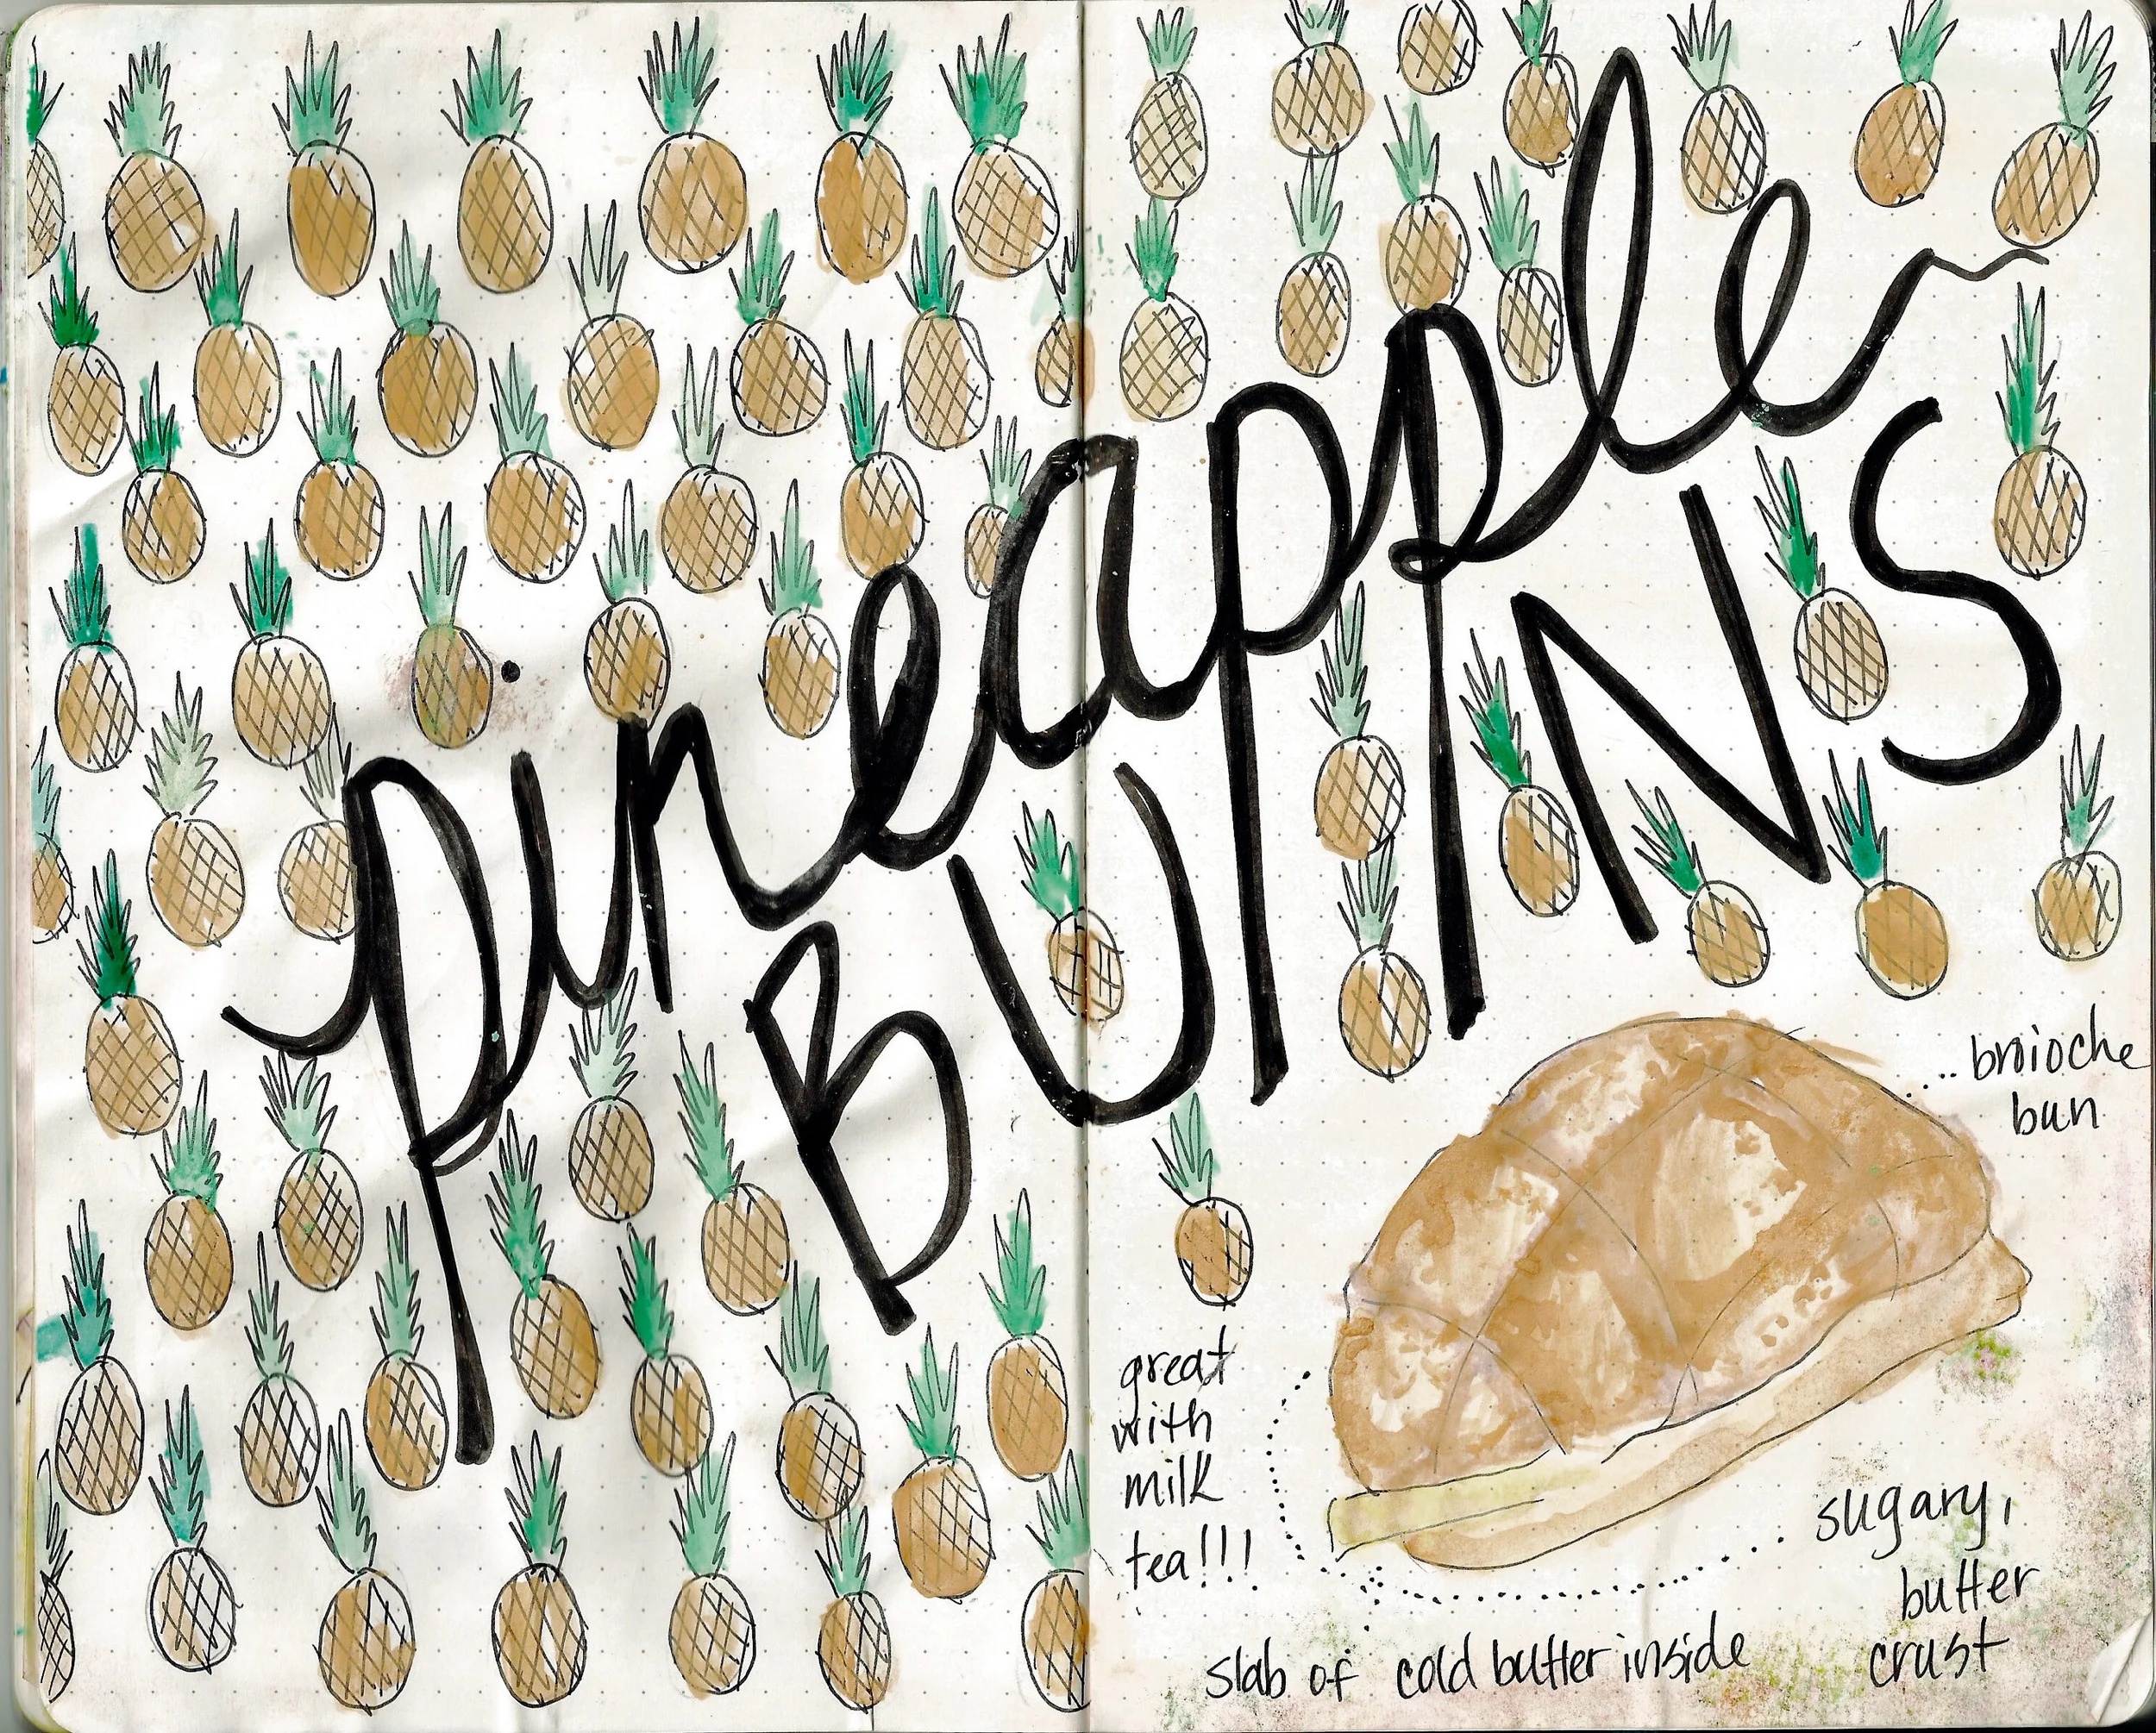 pineapple
BUNS
... broioche
bun
great
with
milk
tea!!!
sugary,
butter
crust
slab of cold butter inside